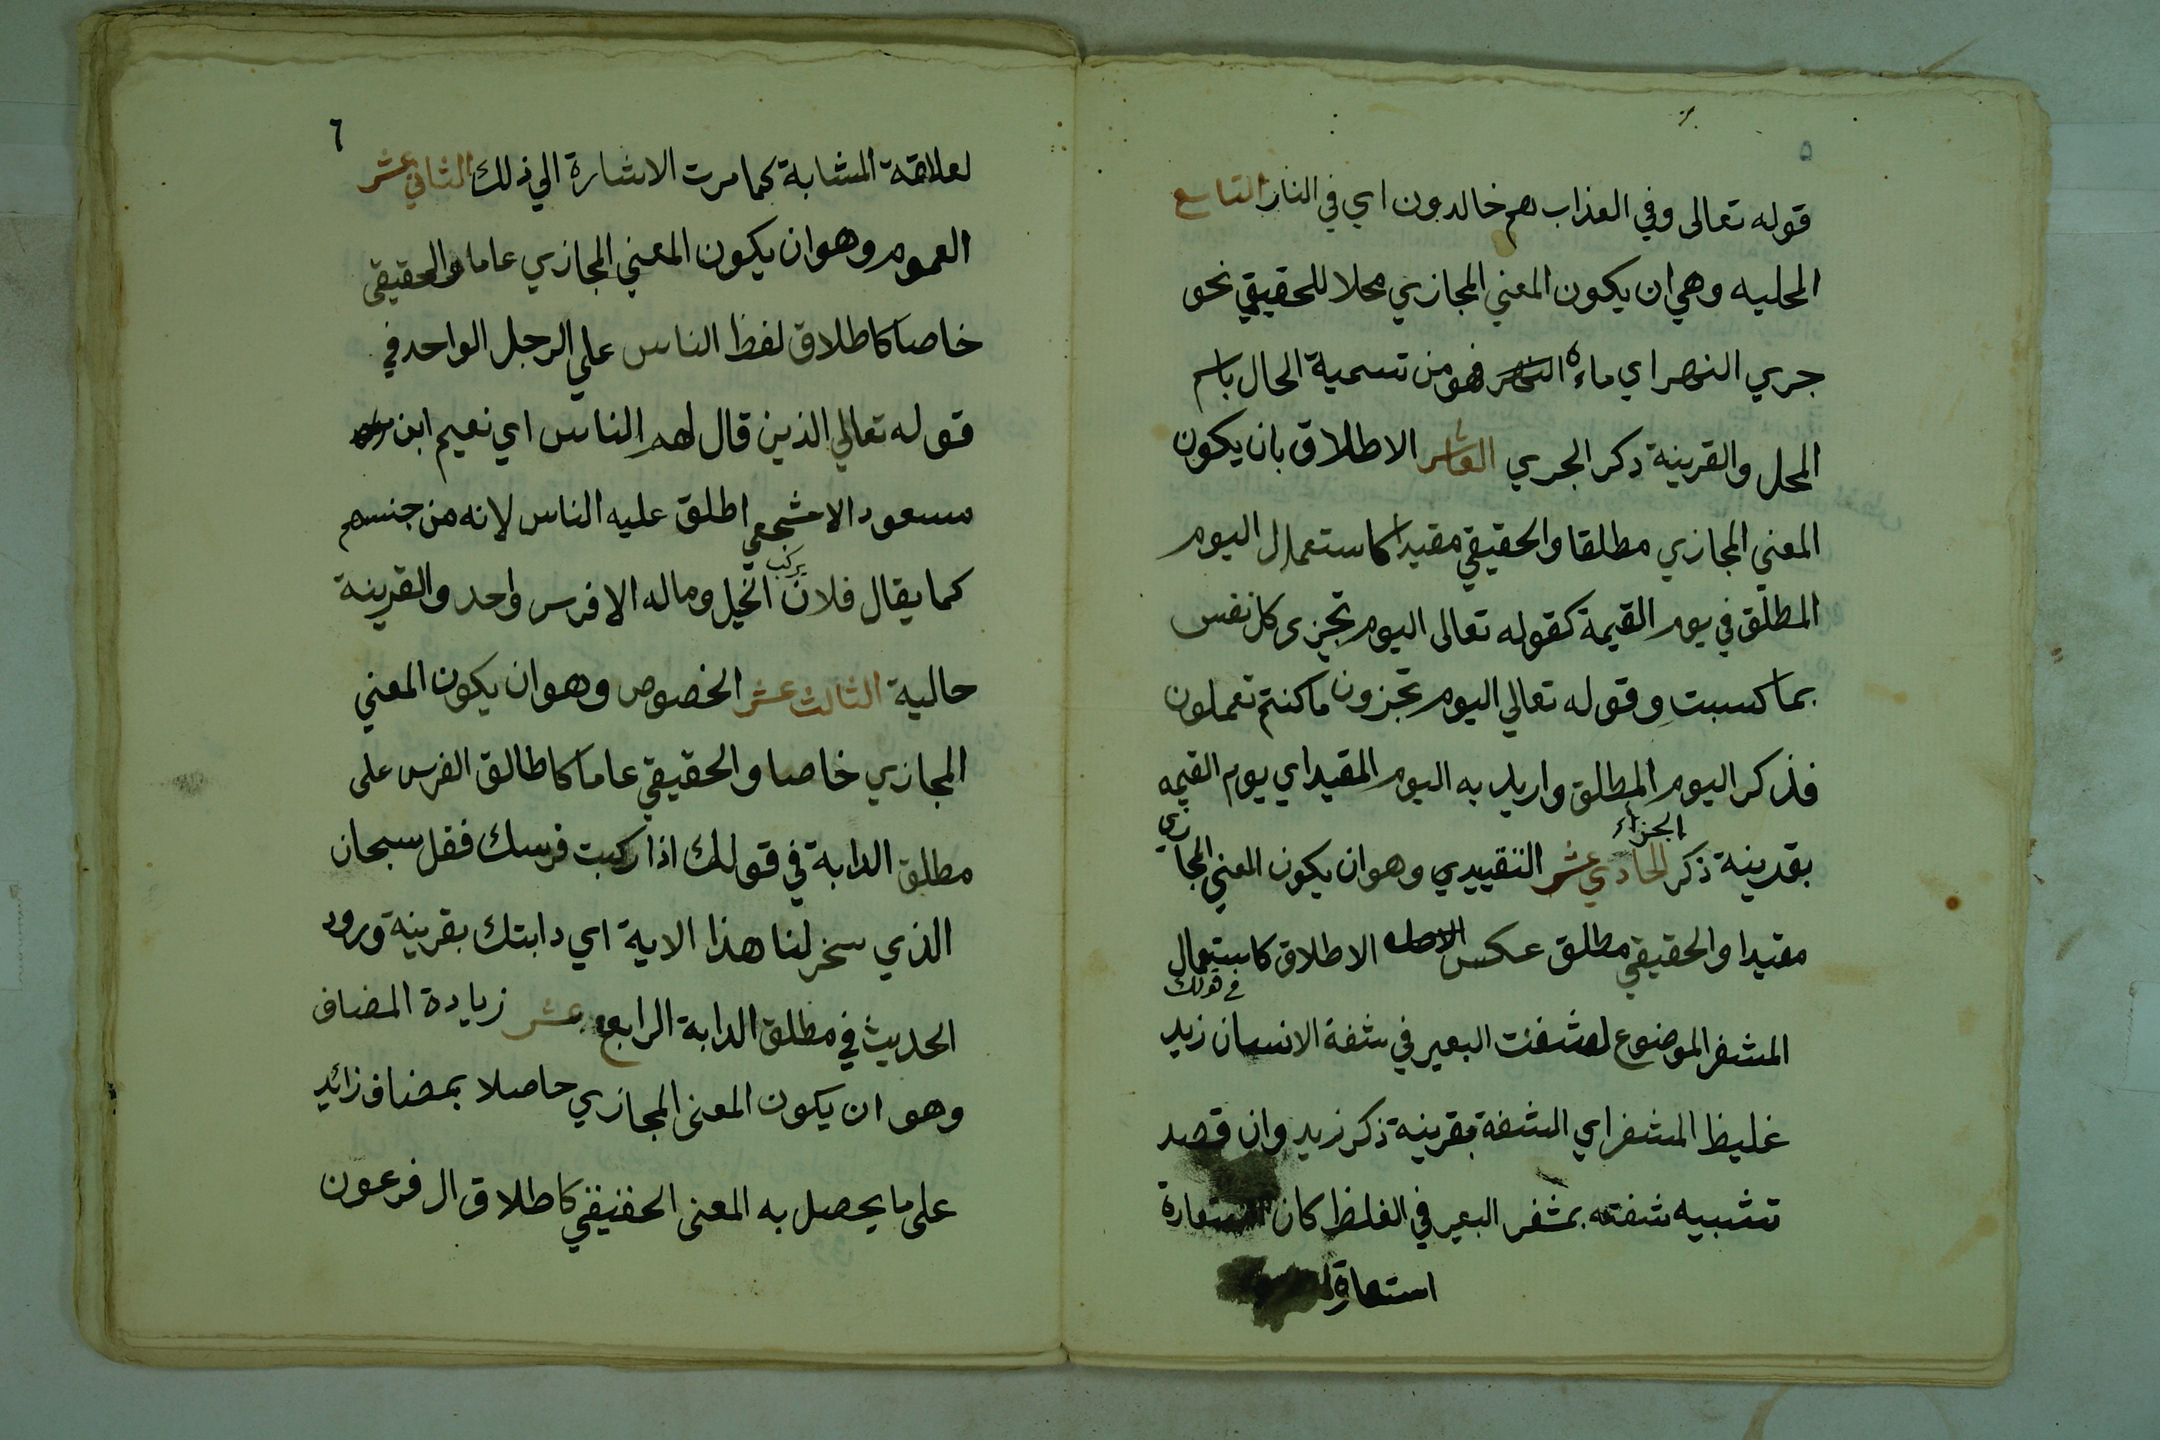 ٥
قوله تعالى وفي العذاب هم خالدون اي في النار التاسع
المحليه وهي ان يكون المعني المجازي محلا للحقيقي نحو
جري النهر اي ماءه فهو من تسمية الحال باسم
المحل والقرينة ذكر الجري العاشر الاطلاق بان يكون
المعني المجازي مطلقا والحقيقي مقيدا كاستعمال اليوم
المطلق في يوم القيمة كقوله تعالى اليوم تجزى كل نفس
بما كسبت وقوله تعالي اليوم تجزون ما كنتم تعملون
فذكر اليوم المطلق واريد به اليوم المقيد اي يوم القيمه
بقرينة ذكر الجزاء الحادي عشر التقييدي وهو ان يكون المعني المجازي
مقيدا والحقيقي مطلق عكس الاطلاق كاستعمال
المشفر الموضوع لمشفت البعير في شفة الانسان في قولك زيد
غليظ المشفر اي الشفة بقرينة ذكر زيد وان قصد
تشبيه شفته بمشفر البعير في الغلظ كان
استعارة
٦
لعلاقة المشابة كما مرت الاشارة الي ذلك الثاني عشر
العموم وهو ان يكون المعني المجازي عاما والحقيقي
خاصا كاطلاق لفظ الناس علي الرجل الواحد في
قوله تعالي الذين قال لهم الناس اي نعيم ابن
مسعود الاشجعي اطلق عليه الناس لانه من جنسهم
كما يقال فلان يركب الخيل وماله الا فرس واحد والقرينة
حالية الثالث عشر الخصوص وهو ان يكون المعني
المجازي خاصا والحقيقي عاما كاطالق الفرس على
مطلق الدابة في قولك اذا ركبت فرسك فقل سبحان
الذي سخر لنا هذا الاية اي دابتك بقرينة ورود
الحديث في مطلق الدابة الرابع عشر زيادة المضاف
وهو ان يكون المعنى المجازي حاصلا بمضاف زائد
على ما يحصل به المعنى الحقيقي كاطلاق ال فرعون